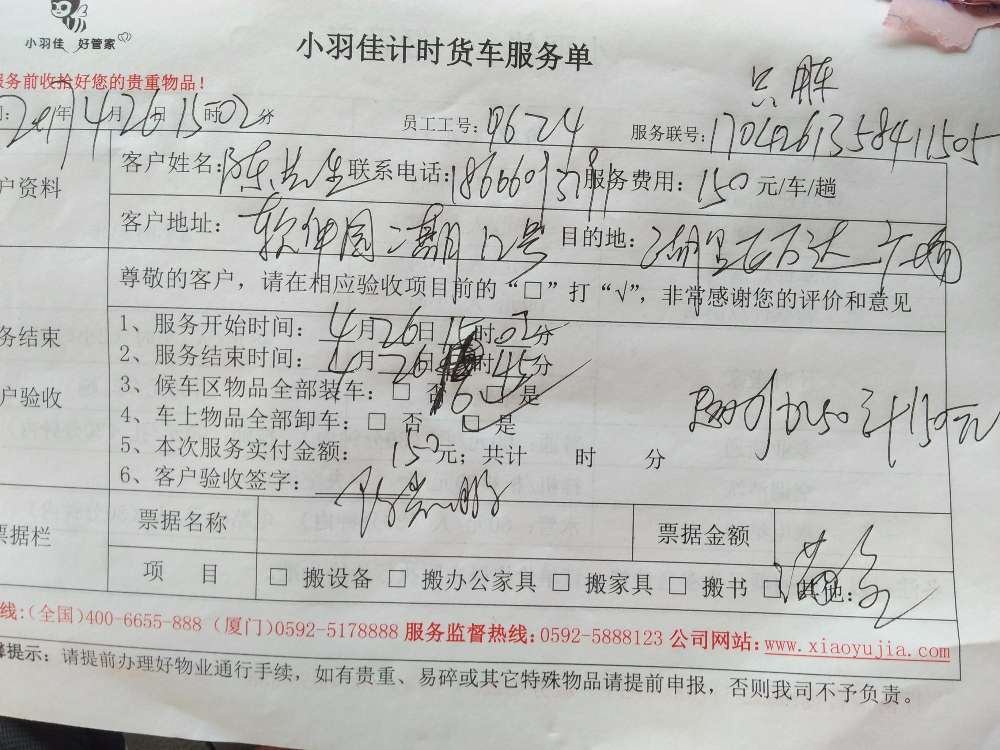 小羽佳 好管家
小羽佳计时货车服务单
服务前收拾好您的贵重物品！
只車
2017年4月26日15时02分 员工工号：9624 服务联号：1704261358411505
户资料 客户姓名：陈先生 联系电话：1866 服务费用：150元/车/趟
客户地址：软件园二期12号 目的地：湖里万达广场
尊敬的客户，请在相应验收项目前的“□”打“√”，非常感谢您的评价和意见
务结束
户验收
1、服务开始时间：4月26日15时02分
2、服务结束时间：4月26日16时45分
3、候车区物品全部装车：□ 否 □ 是
4、车上物品全部卸车：□ 否 □ 是
5、本次服务实付金额：150元；共计 时 分
计150元
6、客户验收签字：
票据栏 票据名称 票据金额
项 目 □ 搬设备 □ 搬办公家具 □ 搬家具 □ 搬书 □ 其他：
线：(全国)400-6655-888 (厦门)0592-5178888 服务监督热线：0592-5888123 公司网站：www.xiaoyujia.com
提示：请提前办理好物业通行手续，如有贵重、易碎或其它特殊物品请提前申报，否则我司不予负责。